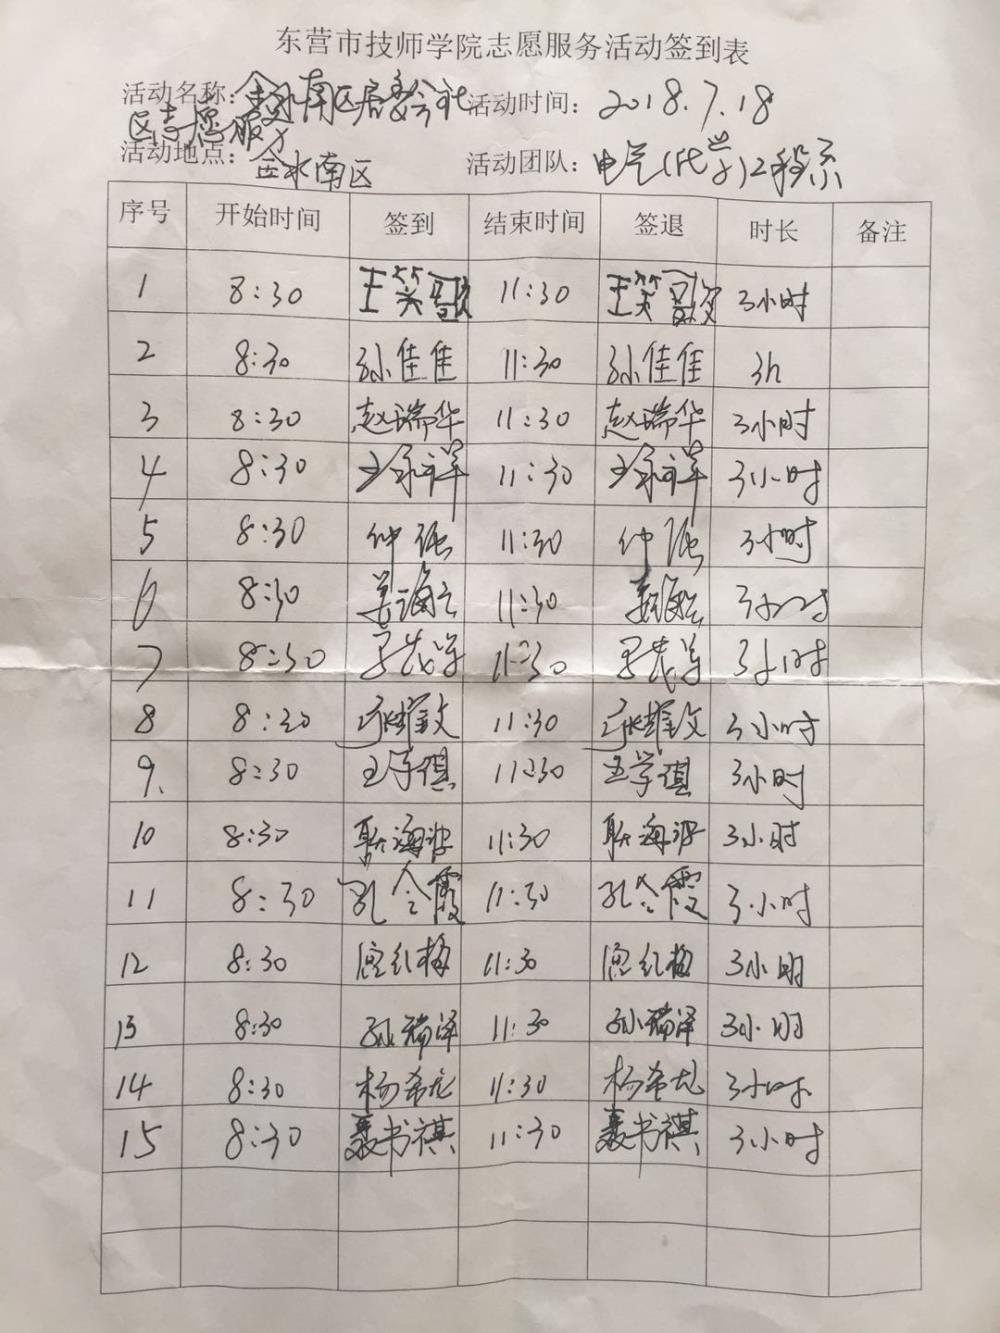 东营市技师学院志愿服务活动签到表
活动名称：金水南区居委会社 活动时间：2018.7.18
区志愿服务
活动地点：金水南区 活动团队：电气(化学)工程系
序号 开始时间 签到 结束时间 签退 时长 备注
1 8:30 王笑歌 11:30 王笑歌 3小时
2 8:30 孙佳佳 11:30 孙佳佳 3h
3 8:30 赵瑞华 11:30 赵瑞华 3小时
4 8:30 王永祥 11:30 王永祥 3小时
5 8:30 仲强 11:30 仲强 3小时
6 8:30 11:30 3小时
7 8:30 11:30 3小时
8 8:30 11:30 3小时
9. 8:30 王学祺 11:30 王学祺 3小时
10 8:30 耿海波 11:30 耿海波 3小时
11 8:30 孔令霞 11:30 孔令霞 3小时
12 8:30 11:30 3小时
13 8:30 孙瑞泽 11:30 孙瑞泽 3小时
14 8:30 杨希龙 11:30 杨希龙 3小时
15 8:30 聂书祺 11:30 聂书祺 3小时